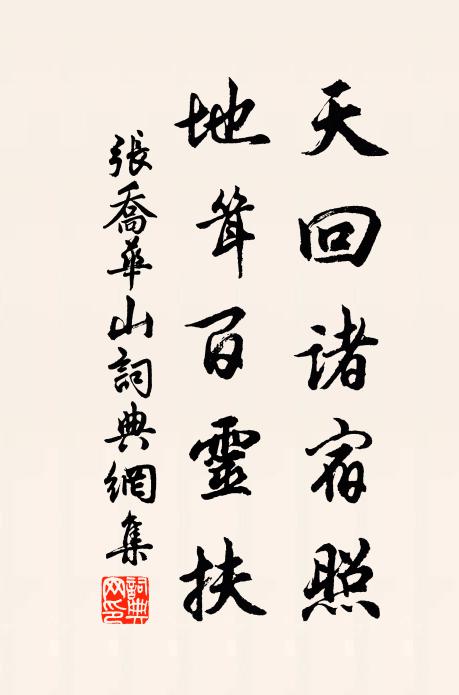 天回諸宿照
地聳百靈扶
張喬華山詞典網集
詞典網印